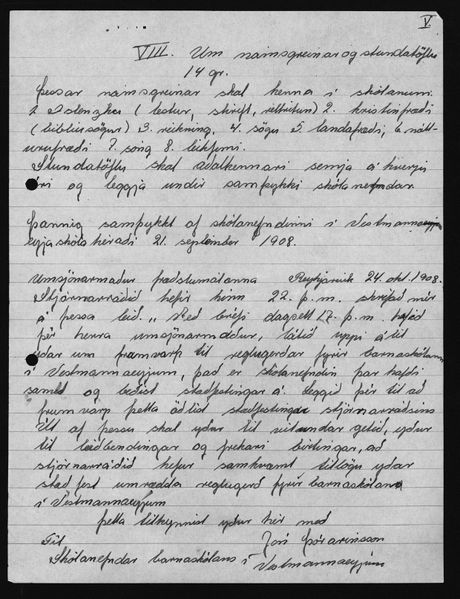 V.
VIII. Um námsgreinar og stundatöflu
14 gr.
Þessar námsgreinar skal kenna í skólanum:
1. Íslenzka (lestur, skrift, réttritun) 2. kristinfræði
(biblíusögur) 3. reikning, 4. sögu 5. landafræði, 6. nátt-
úrufræði 7. söng 8. leikfimi.
Stundatöflu skal aðalkennari semja á hverju
ári og leggja undir samþykki skólanefndar.
Þannig samþykkt af skólanefndinni í Vestmannaeyja
eyjaskólahéraði 21. september 1908.
Umsjónarmaður fræðslumálanna Reykjavík 24. okt. 1908.
Stjórnarráðið hefir hinn 22. þ.m. skrifað mér
á þessa leið. „Með bréfi dagsett 17. þ.m. hafið
þér herra umsjónarmaður, látið uppi álit
yðar um frumvarp til reglugerðar fyrir barnaskólann
í Vestmannaeyjum, það er skólanefndin þar hafði
samið og beðist staðfestingar á. leggið þér til að
frumvarp þetta öðlist staðfestingar stjórnarráðsins
Út af þessu skal yður til vitundar gefið, yður
til leiðbeiningar og frekari birtingar, að
stjórnarráðið hefur samkvæmt tillögu yðar
staðfest umrædda reglugerð fyrir barnaskólann
í Vestmannaeyjum
Þetta tilkynnist yður hér með
Til Jón Þórarinsson
Skólanefndar barnaskólans í Vestmannaeyjum